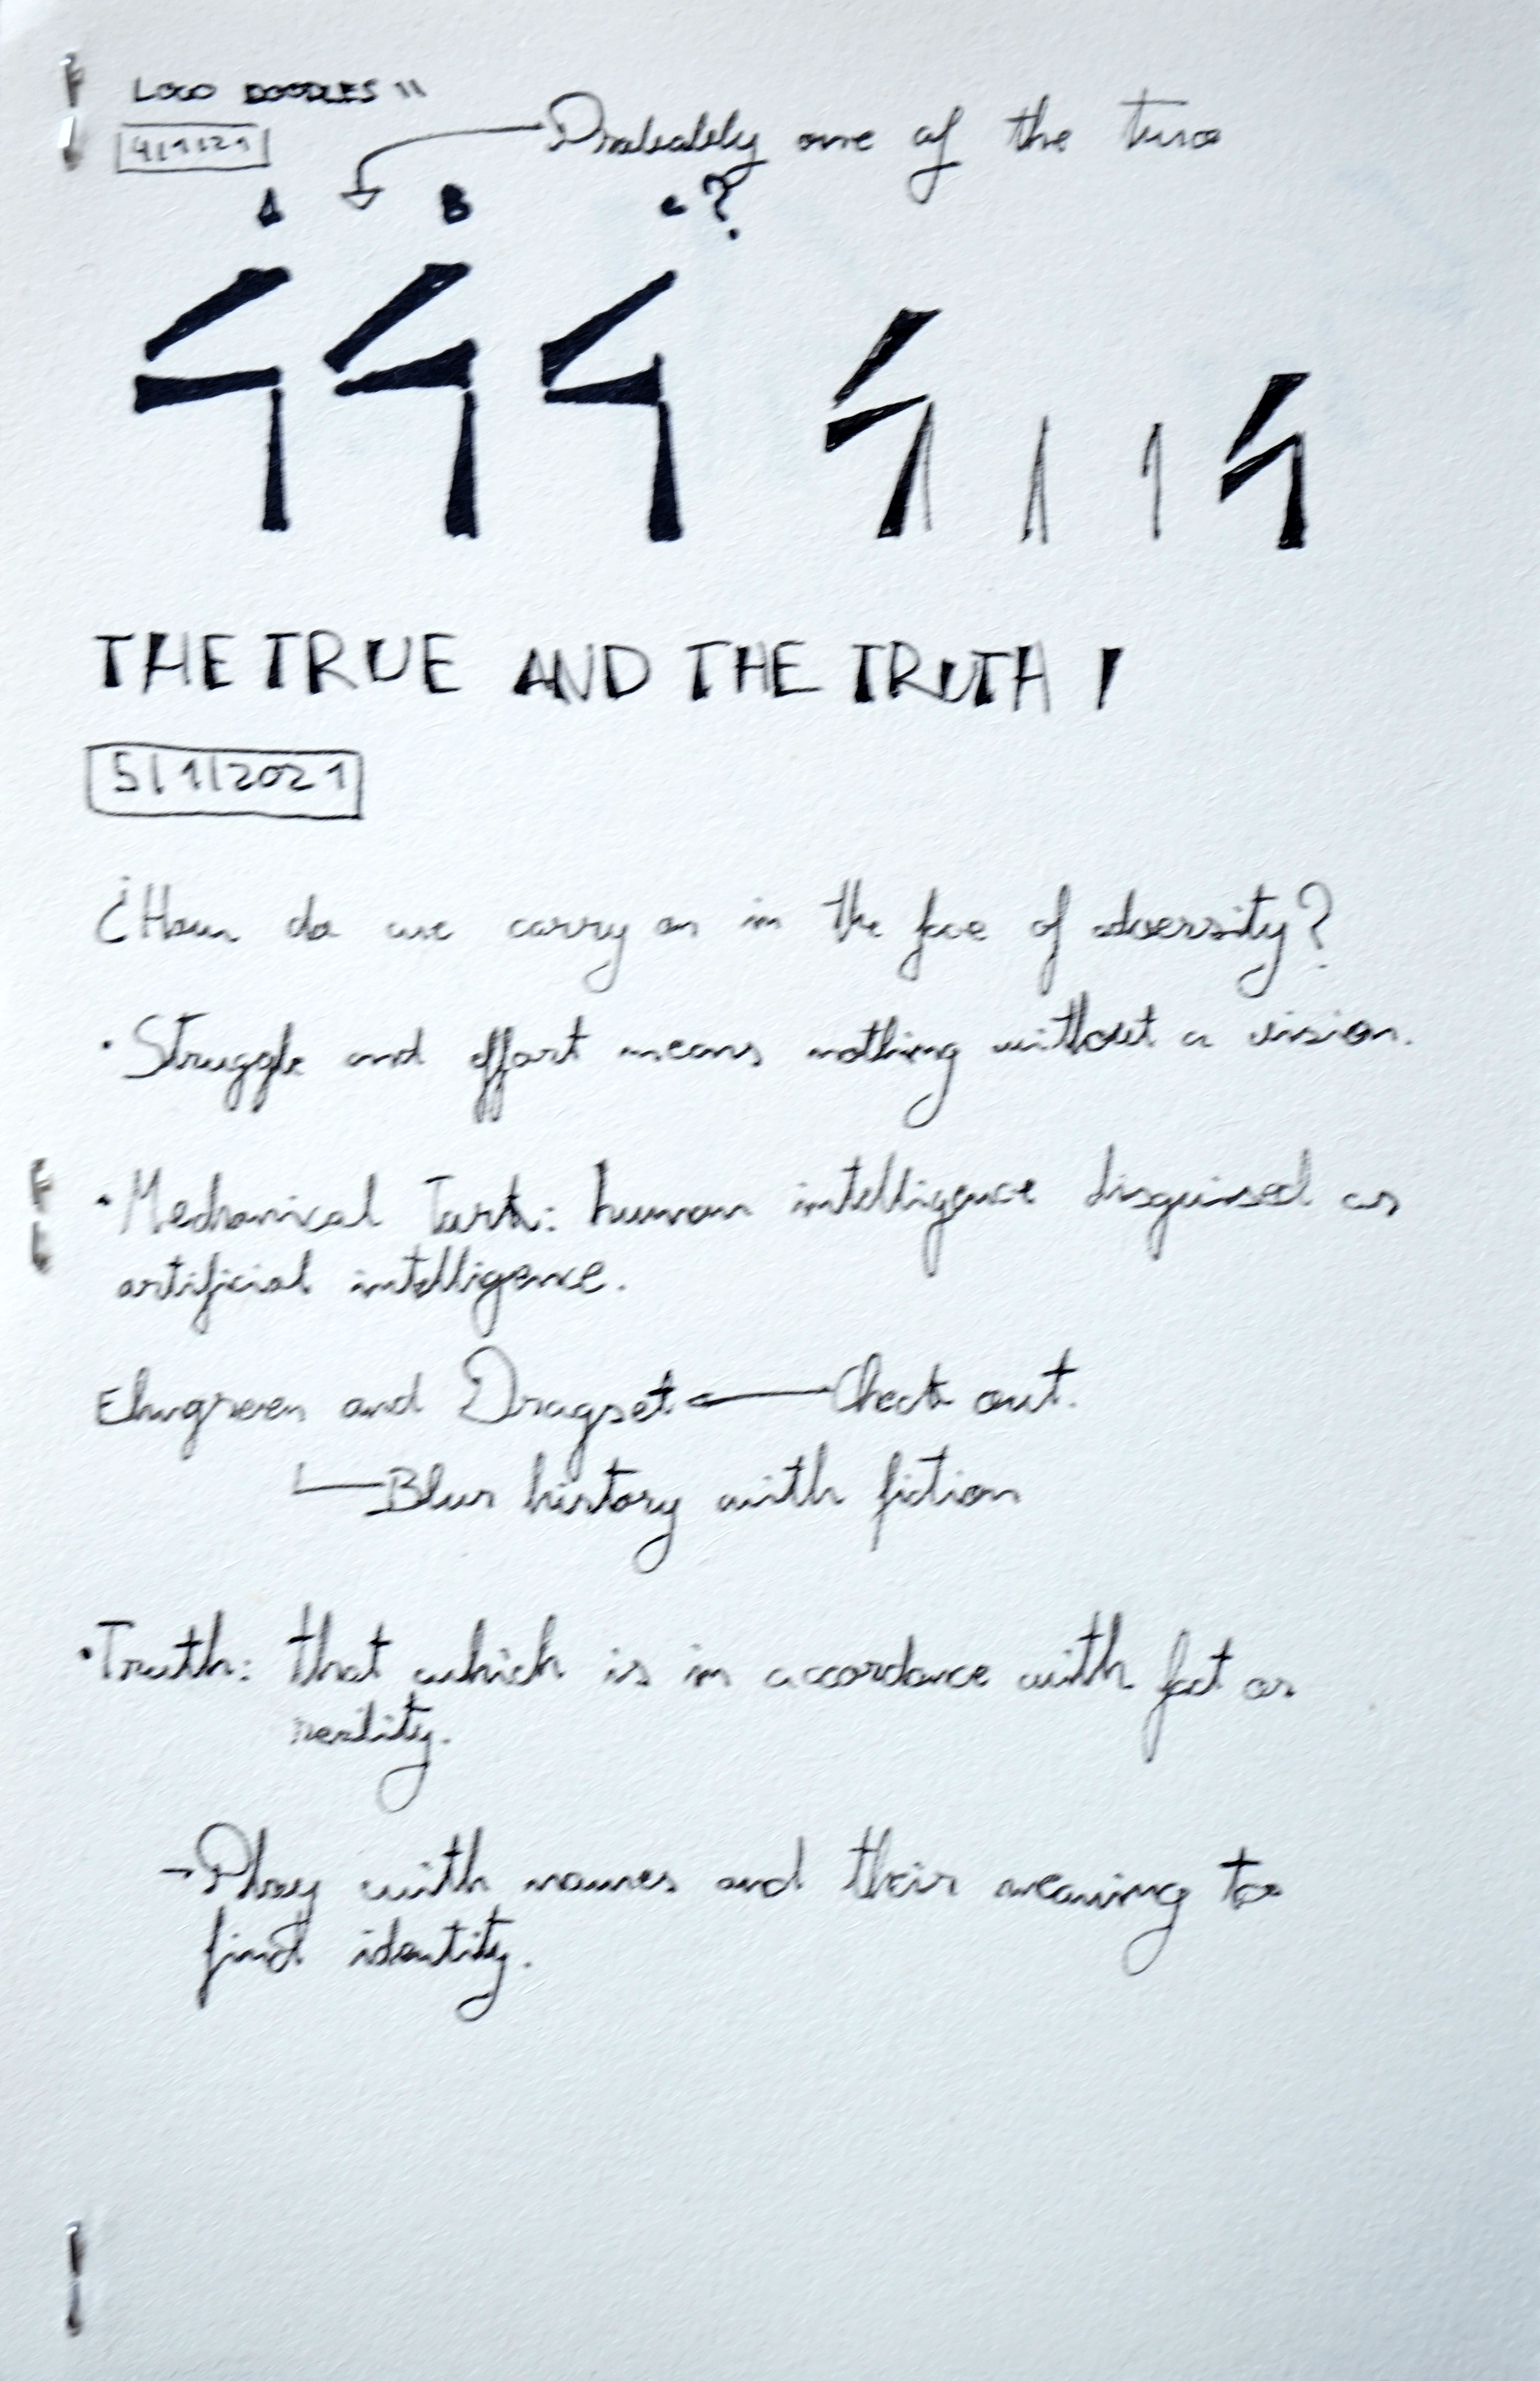 LOGO DOODLES II
4/1/21
Probably one of the two
A B C?
THE TRUE AND THE TRUTH !
5/1/2021
¿How do we carry on in the face of adversity?
· Struggle and effort means nothing without a vision.
· Mechanical Turk: human intelligence disguised as
artificial intelligence.
Elmgreen and Dragset ← Check out.
Blur history with fiction
· Truth: that which is in accordance with fact or
reality.
→ Play with names and their meaning to
find identity.